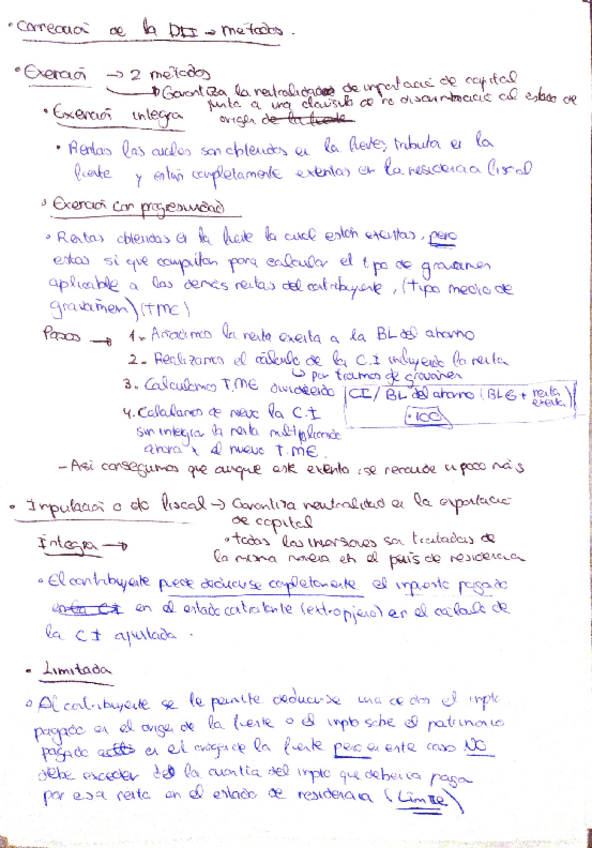 • Corrección de la DII → métodos.
• Exención → 2 métodos
↳ Garantiza la neutralidad de importación de capital
junto a una cláusula de no discriminación al estado de
origen de la fuente
• Exención integra
• Rentas las cuales son obtenidas en la fuente, tributa en la
fuente y están completamente exentas en la residencia fiscal
• Exención con progresividad
• Rentas obtenidas en la fuente la cual están exentas, pero
estas si que computan para calcular el tipo de gravamen
aplicable a las demás rentas del contribuyente, (tipo medio de
gravamen) (TMG)
Pasos → 1.- Añadimos la renta exenta a la BL del ahorro
2.- Realizamos el cálculo de la C.I incluyendo la renta
↳ por tramos de gravamen
3.- Calculamos T.ME dividiendo CI / BL del ahorro (BLG + renta exenta)
· 100
4. Calculamos de nuevo la C.I
sin integrar la renta multiplicando
ahora x el nuevo T.ME.
- Asi conseguimos que aunque este exento, se recaude un poco más
• Imputación o dto fiscal → Garantiza neutralidad en la exportación
de capital
• todos los inversores son tratados de
la misma manera en el país de residencia
Integra →
• El contribuyente puede deducirse completamente el impuesto pagado
en la CI en el estado contratante (extranjero) en el cálculo de
la CI ajustada.
• Limitada
• Al contribuyente se le permite deducirse una el impto
pagado en el origen de la fuente o el impto sobre el patrimonio
pagado en el origen de la fuente pero en este caso NO
debe exceder de la cuantía del impto que debería pagar
por esa renta en el estado de residencia (Límite)